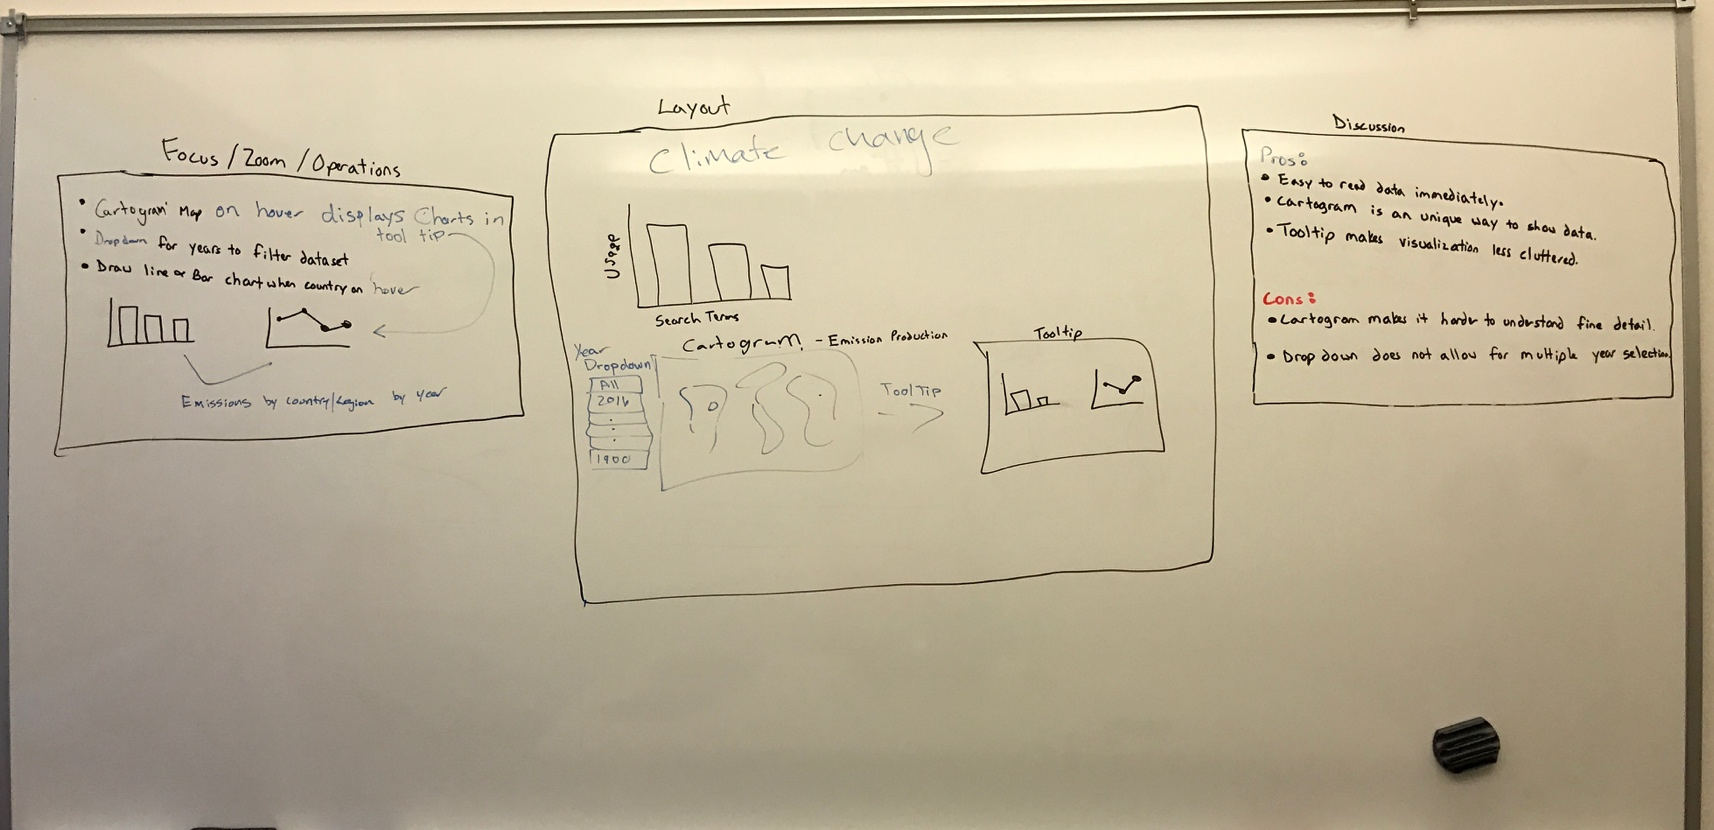 Focus / Zoom / Operations
• Cartogram Map on hover displays Charts in
tool tip
• Dropdown for years to filter dataset
• Draw line or Bar chart when country on hover
Emissions by country/Region by year
Layout
Climate change
Usage
Search Terms
Year
Dropdown
All
2016
1900
Cartogram - Emission Production
ToolTip
Tooltip
Discussion
Pros:
• Easy to read data immediately.
• Cartogram is an unique way to show data.
• Tooltip makes visualization less cluttered.
Cons:
• Cartogram makes it harder to understand fine detail.
• Drop down does not allow for multiple year selection